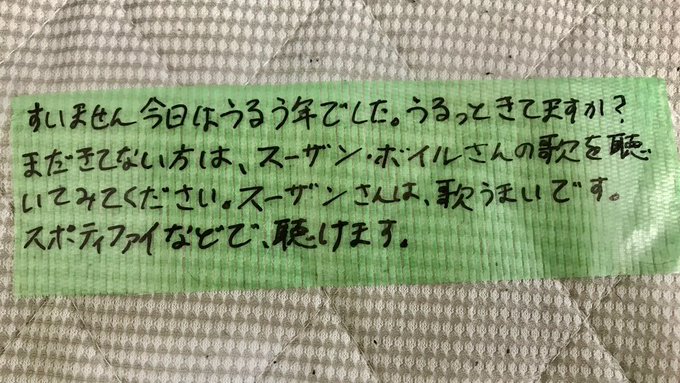 すいません今日はうるう年でした。うるっときてますか?
まだきてない方は、スーザン・ボイルさんの歌を聴
いてみてください。スーザンさんは、歌うまいです。
スポティファイなどで、聴けます。